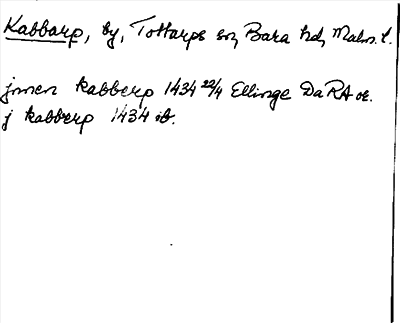 Kabbarp, by, Tottarps sn, Bara hd, Malm. l.
jnnen kabberp 1434 22/4 Ellinge DaRA or.
j kabberp 1434 ib.